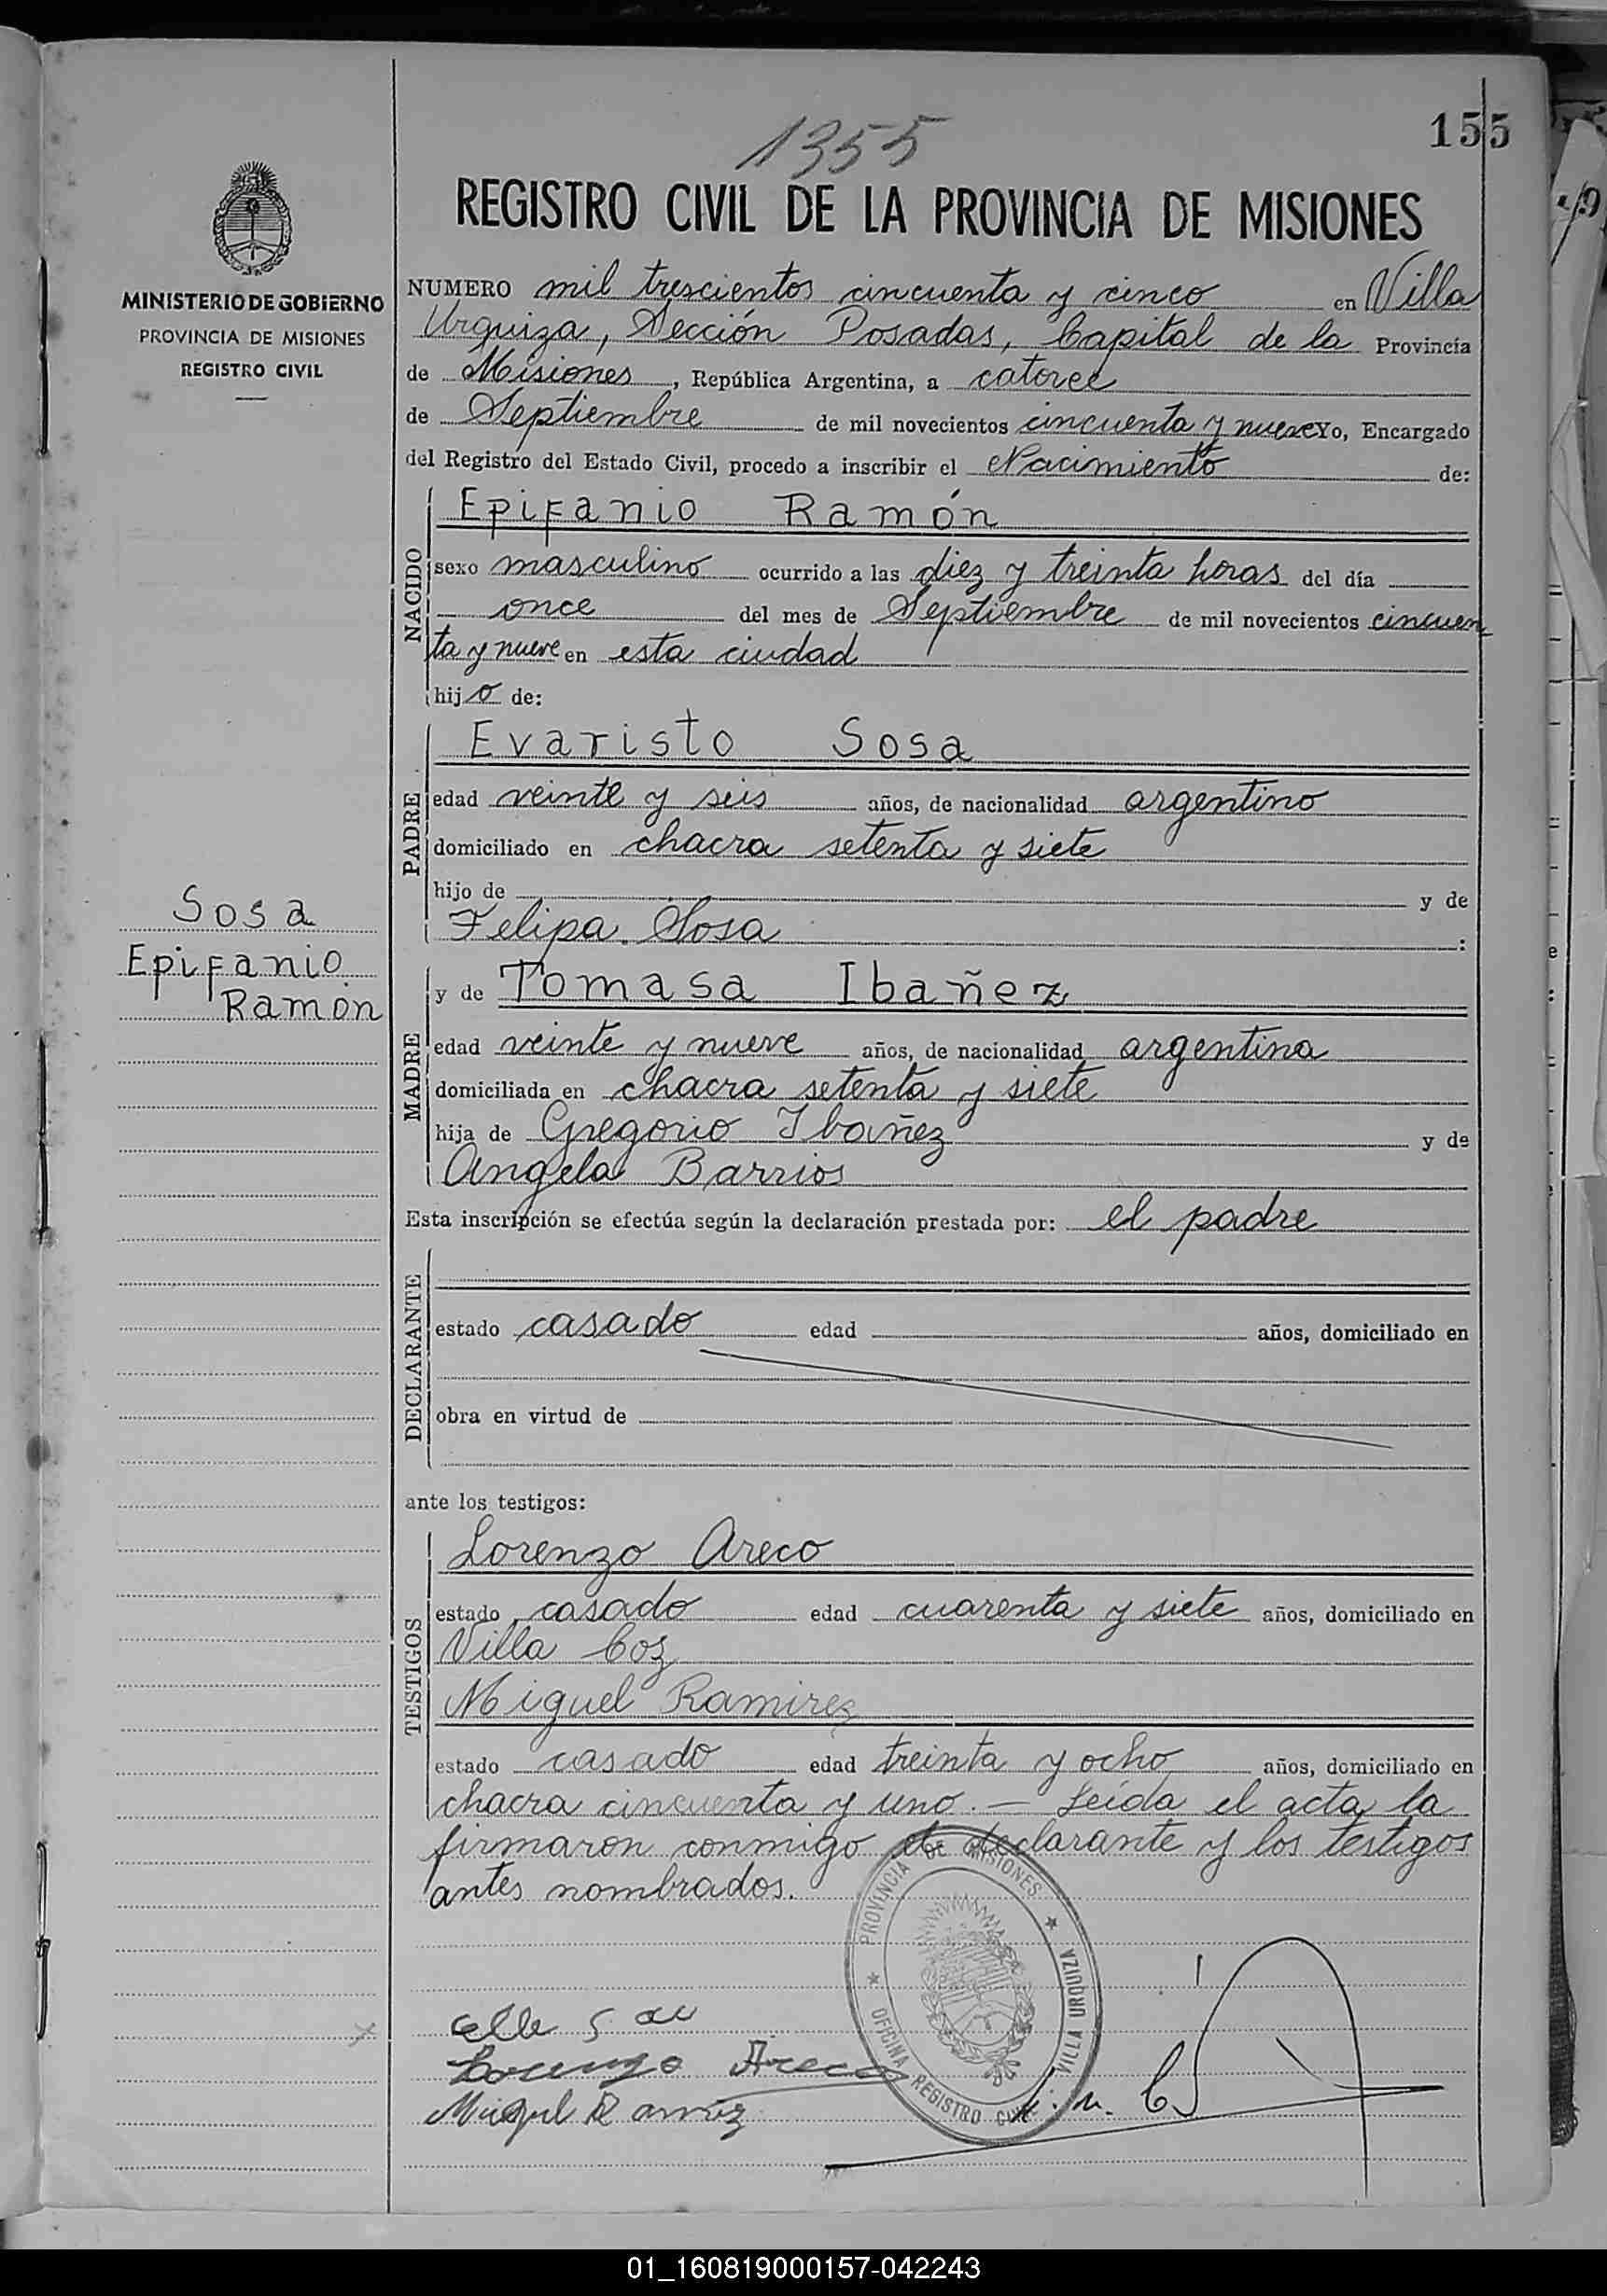 1355
155
MINISTERIO DE GOBIERNO
PROVINCIA DE MISIONES
REGISTRO CIVIL
Sosa
Epifanio
Ramón
REGISTRO CIVIL DE LA PROVINCIA DE MISIONES
NUMERO mil trescientos cincuenta y cinco en Villa
Urquiza, Sección Posadas, Capital de la Provincia
de Misiones, República Argentina, a catorce
de Septiembre de mil novecientos cincuenta y nueve Yo, Encargado
del Registro del Estado Civil, procedo a inscribir el Nacimiento de:
NACIDO
Epifanio Ramón
sexo masculino ocurrido a las diez y treinta horas del día
once del mes de Septiembre de mil novecientos cincuen
ta y nueve en esta ciudad
hijo de:
PADRE
Evaristo Sosa
edad veinte y seis años, de nacionalidad argentino
domiciliado en chacra setenta y siete
hijo de y de
Felipa Sosa :
MADRE
y de Tomasa Ibañez
edad veinte y nueve años, de nacionalidad argentina
domiciliada en chacra setenta y siete
hija de Gregorio Ibañez y de
Angela Barrios
Esta inscripción se efectúa según la declaración prestada por: el padre
DECLARANTE
estado casado edad años, domiciliado en
obra en virtud de
ante los testigos:
TESTIGOS
Lorenzo Areco
estado casado edad cuarenta y siete años, domiciliado en
Villa Coz
Miguel Ramirez
estado casado edad treinta y ocho años, domiciliado en
chacra cincuenta y uno. — Leída el acta la
firmaron conmigo el declarante y los testigos
antes nombrados.
PROVINCIA DE MISIONES
VILLA URQUIZA
OFICINA REGISTRO CIVIL
Lorenzo Areco
Miguel Ramirez
01_160819000157-042243